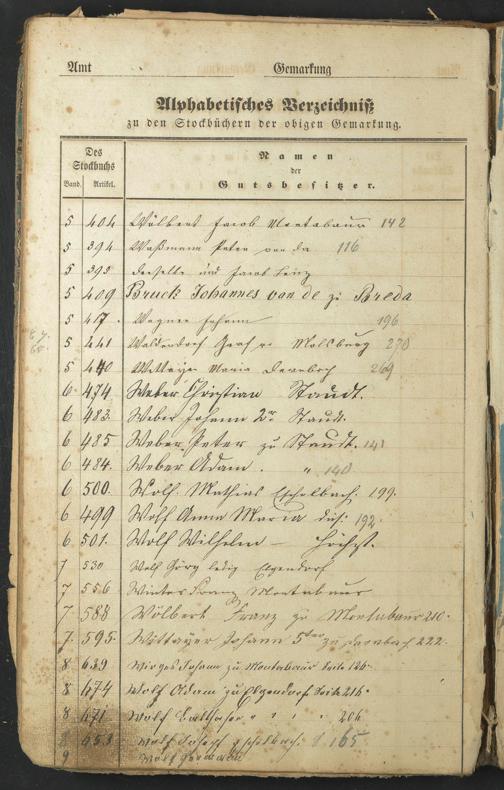 Amt Gemarkung
Alphabetisches Verzeichniß
zu den Stockbüchern der obigen Gemarkung.
Des Stockbuchs
Band. Artikel.
Namen
der
Gutsbesitzer.
5 404 Wölbert Jacob Montabaur 142
5 394 Waßmann Peter von da 116
5 395 derselbe und Jacob
5 409 Bruck Johannes van de zu Breda
5 417 Wagner Johann 196
5 441 Walderdorf Graf v. Molsberg 270
5 440 Maria 269
6 474. Weber Christian Staudt.
6 483. Weber Johann 2r Staudt.
6 485 Weber Peter zu Staudt. 141
6 484. Weber Adam. " 140
6 500. Wolf Mathias Eschelbach. 199.
6 499 Wolf Anna Maria das: 192.
6 501. Wolf Wilhelm — Höchst.
7 530 Wolf Görg ledig Elgendorf
7 556 Winter Franz Montabaur
7. 588 Wölbert Franz zu Montabaur 210.
7. 595. Wittayer Johann 5ter zu Dernbach 222.
8 639 Wirges Johann zu Montabaur Seite 126.
8 674 Wolf Adam zu Elgendorf Seite 216.
8 671 Wolf Balthasar " " " " 206
8 653 Wolf Joseph Eschelbach. S 165
9 Wolf Hermann